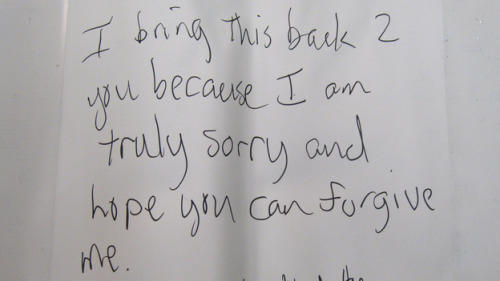 I bring this back 2
you because I am
truly sorry and
hope you can forgive
me.